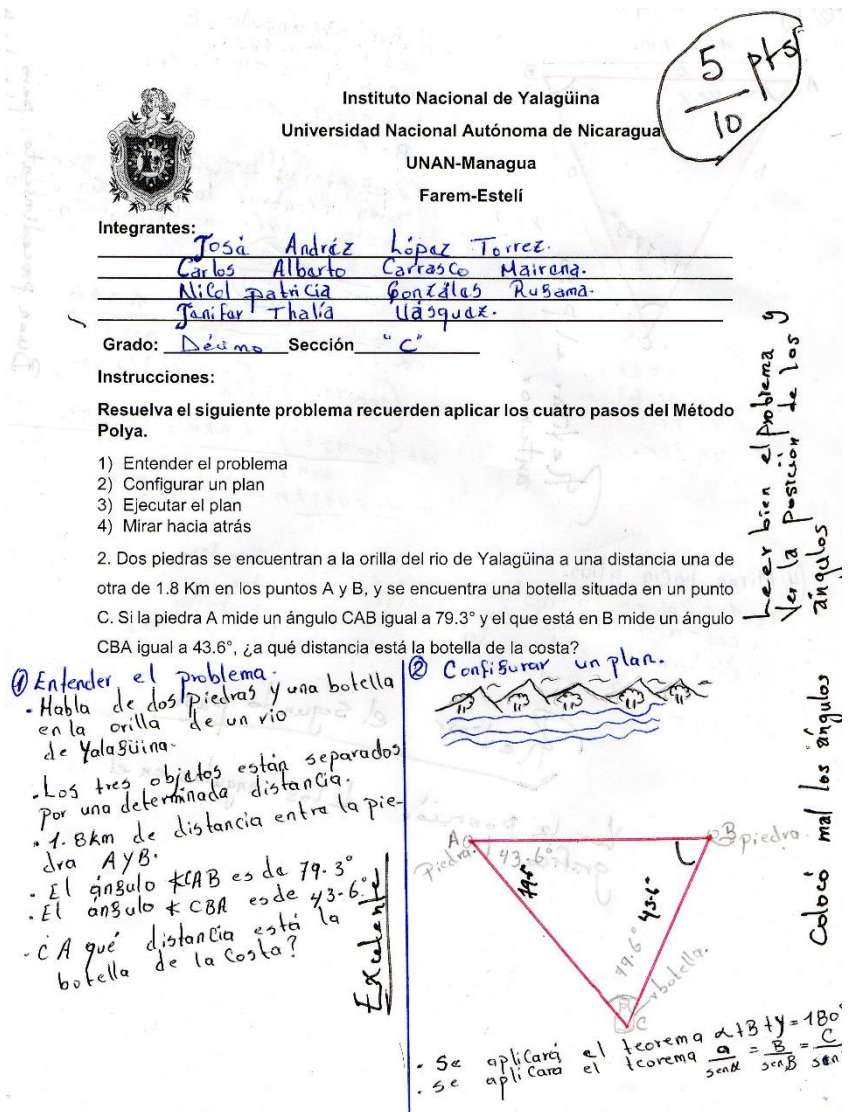 5/10 pts
Instituto Nacional de Yalagüina
Universidad Nacional Autónoma de Nicaragua
UNAN-Managua
Farem-Estelí
Integrantes:
José Andréz López Torrez.
Carlos Alberto Carrasco Mairena.
Nicol patricia Gonzáles Rugama.
Jenifer Thalía Vásquez.
Grado: Décimo Sección "C"
Instrucciones:
Resuelva el siguiente problema recuerden aplicar los cuatro pasos del Método
Polya.
1) Entender el problema
2) Configurar un plan
3) Ejecutar el plan
4) Mirar hacia atrás
2. Dos piedras se encuentran a la orilla del rio de Yalagüina a una distancia una de
otra de 1.8 Km en los puntos A y B, y se encuentra una botella situada en un punto
C. Si la piedra A mide un ángulo CAB igual a 79.3° y el que está en B mide un ángulo
CBA igual a 43.6°, ¿a qué distancia está la botella de la costa?
Leer bien el problema y
Ver la posición de los
ángulos
① Entender el problema.
- Habla de dos piedras y una botella
en la orilla de un río
de Yalagüina.
- Los tres objetos están separados
por una determinada distancia.
• 1.8km de distancia entre la pie-
dra A y B.
- El ángulo ∢CAB es de 79.3°
- El ángulo ∢ CBA es de 43.6°.
- ¿A qué distancia está la
botella de la Costa?
Excelente
② Configurar un plan.
A
Piedra.
43.6°
B piedra.
79.6°
43.6°
botella.
C
Colocó mal los ángulos
- Se aplicará el teorema α+B+y=180°
- se aplicara el teorema a/senα = B/senB = C/sen